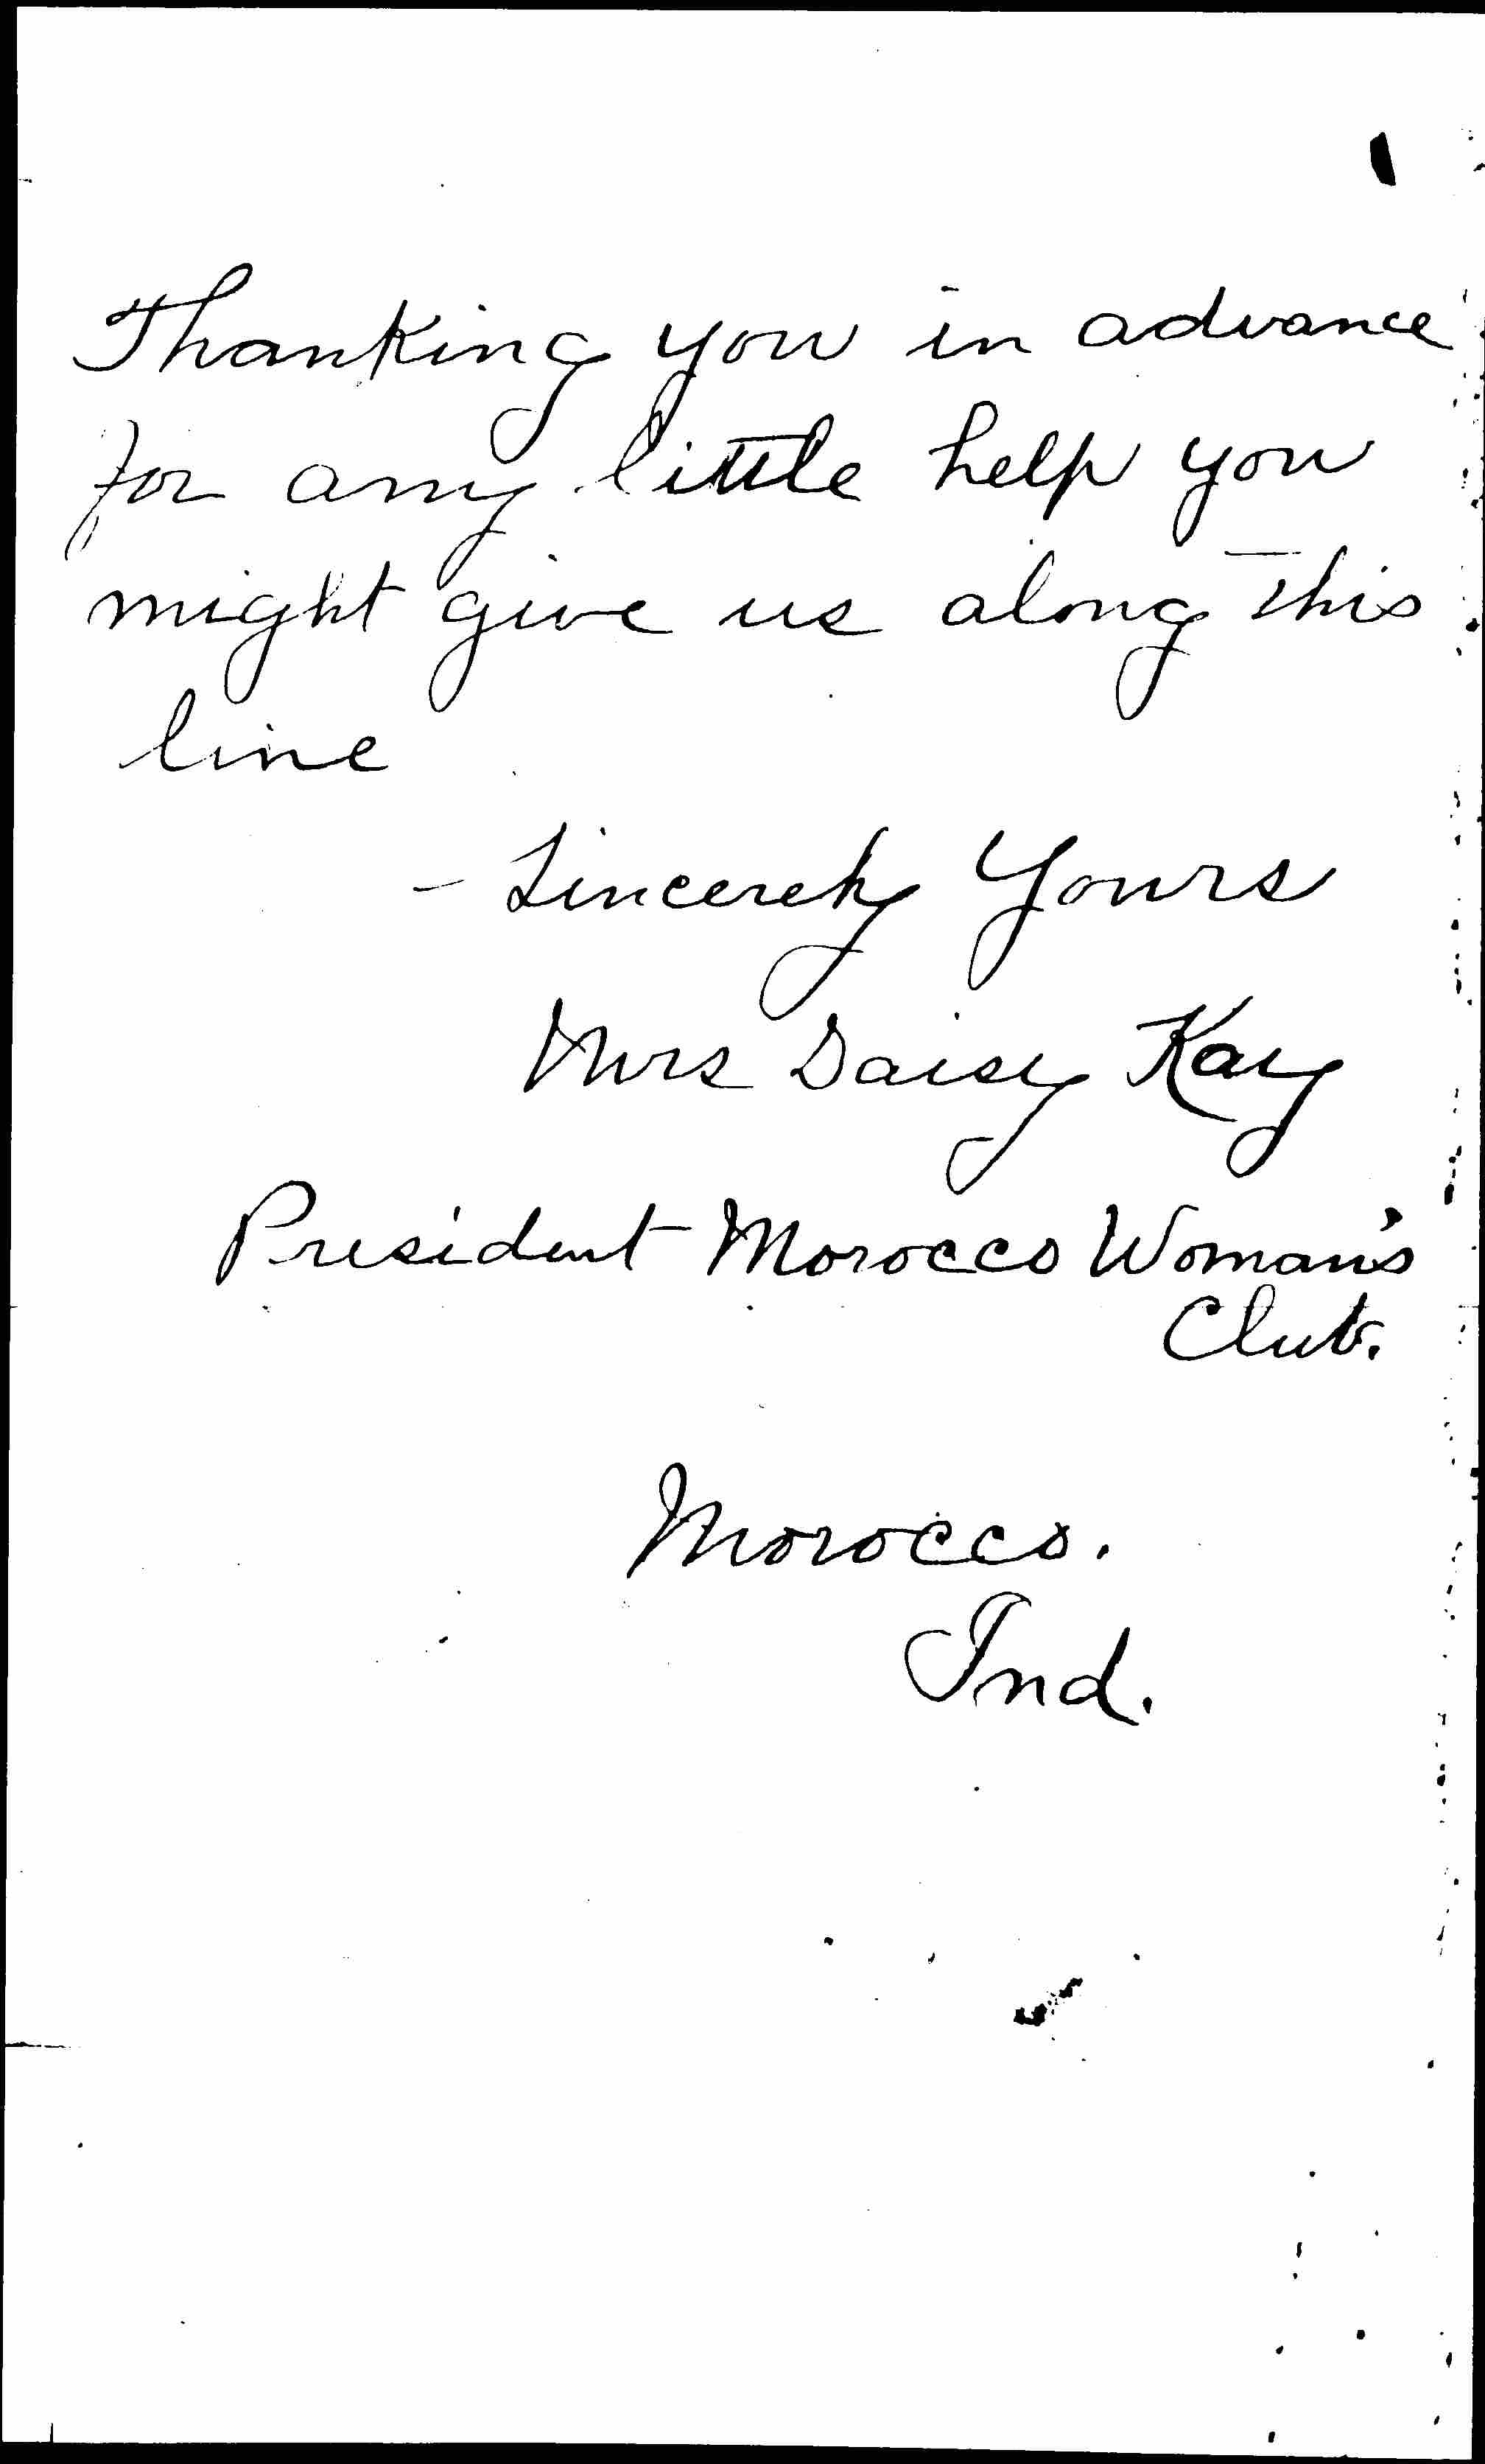 Thanking you in advance
for any little help you
might give us along this
line
- Sincerely Yours
Mrs Daisy Kay
President Morocco Woman's
Club.
Morocco.
Ind.